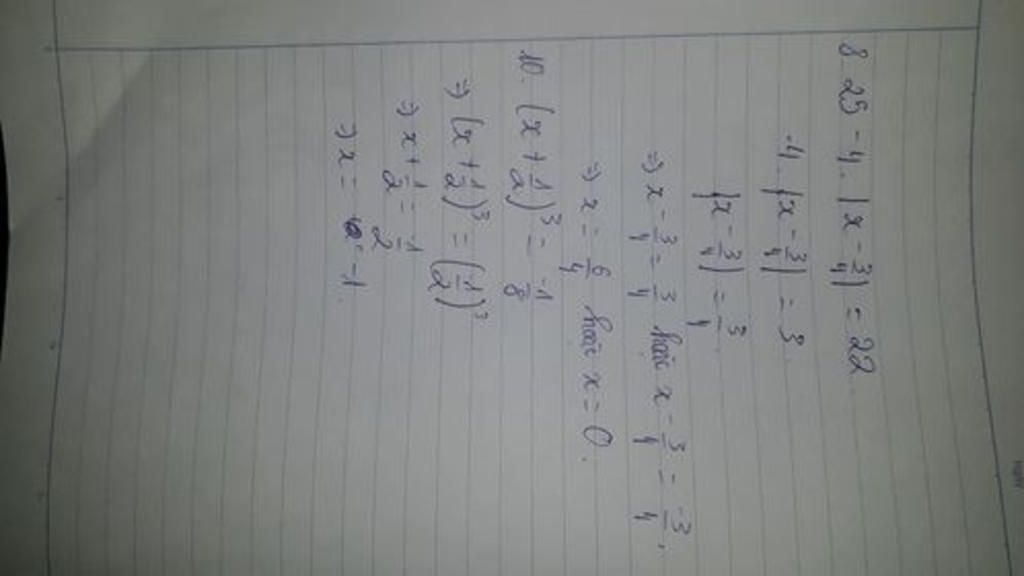 8 25 - 4. |x - 3/4| = 22
4. |x - 3/4| = 3.
|x - 3/4| = 3/4
=> x - 3/4 = 3/4 hoặc x - 3/4 = -3/4.
=> x = 6/4 hoặc x = 0.
10. (x + 1/2)³ = -1/8
=> (x + 1/2)³ = (-1/2)³
=> x + 1/2 = -1/2
=> x = -1.